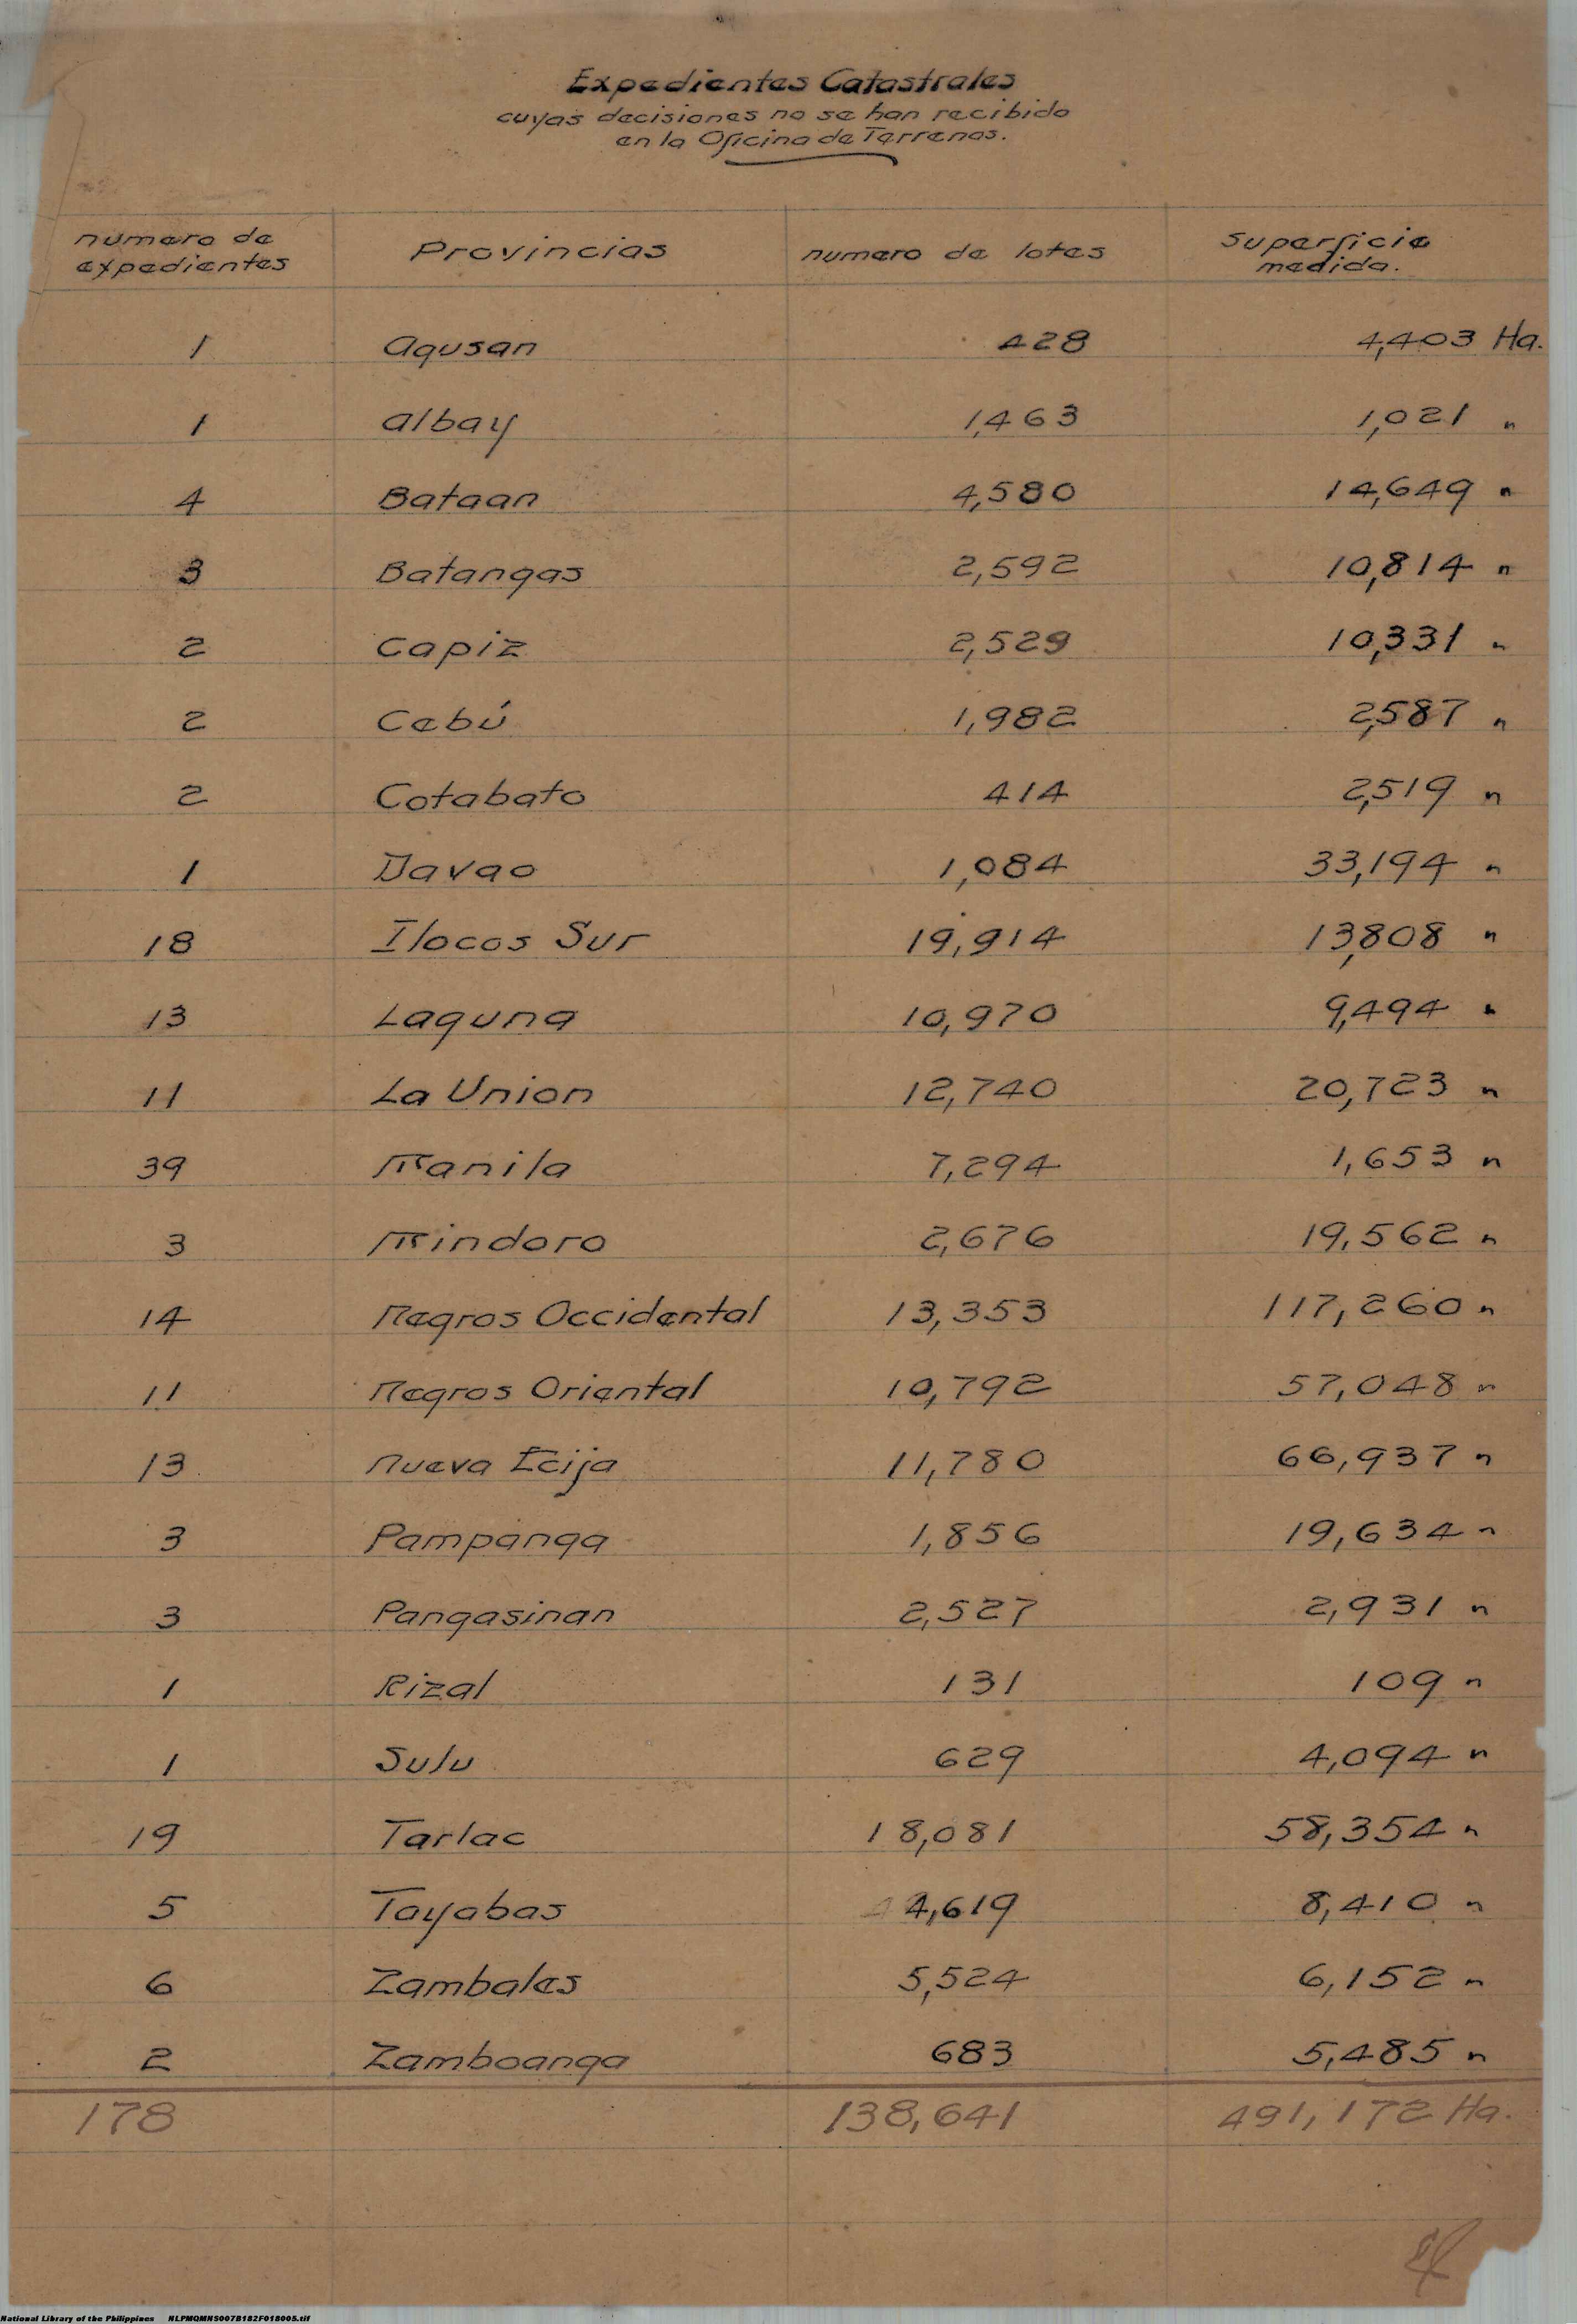 Expedientes Catastrales
cuyas decisiones no se han recibido
en la Oficina de Terrenos.
numero de expedientes Provincias numero de lotes Superficie medida.
1 Agusan 428 4,403 Ha.
1 Albay 1,463 1,021 "
4 Bataan 4,580 14,649 "
3 Batangas 2,592 10,814 "
2 Capiz 2,529 10,331 "
2 Cebú 1,982 2,587 "
2 Cotabato 414 2,519 "
1 Davao 1,084 33,194 "
18 Ilocos Sur 19,914 13,808 "
13 Laguna 10,970 9,494 "
11 La Union 12,740 20,723 "
39 Manila 7,294 1,653 "
3 Mindoro 2,676 19,562 "
14 Negros Occidental 13,353 117,260 "
11 Negros Oriental 10,792 57,048 "
13 Nueva Ecija 11,780 66,937 "
3 Pampanga 1,856 19,634 "
3 Pangasinan 2,527 2,931 "
1 Rizal 131 109 "
1 Sulu 629 4,094 "
19 Tarlac 18,081 58,354 "
5 Tayabas 4,619 8,410 "
6 Zambales 5,524 6,152 "
2 Zamboanga 683 5,485 "
178 138,641 491,172 Ha.
National Library of the Philippines NLPMQMNS007B182F018005.tif